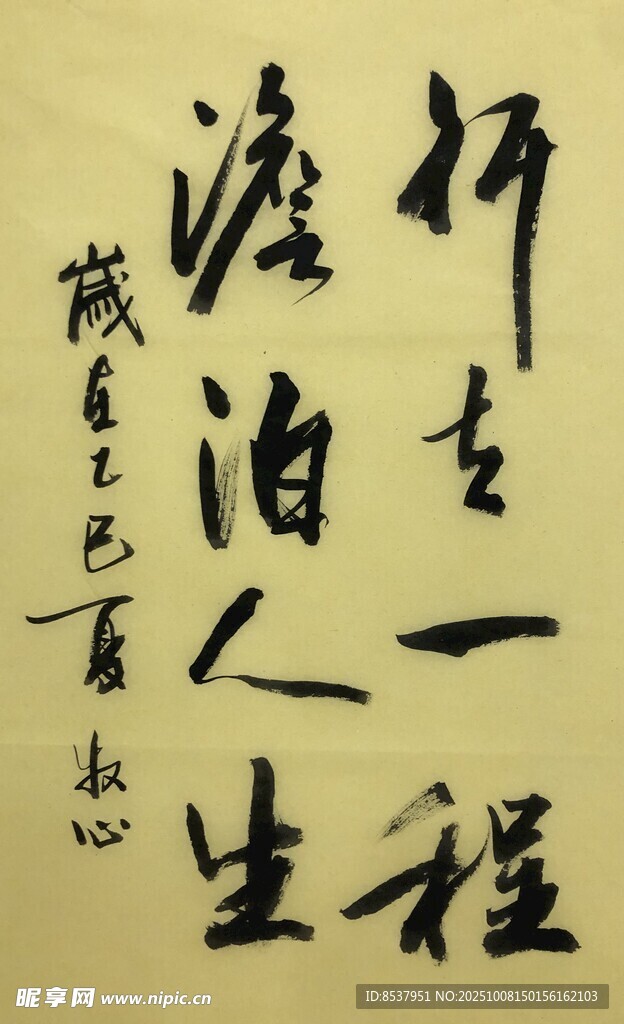 去一程
澹泊人生
歲在乙巳夏 牧心
昵享网 www.nipic.cn
ID:8537951 NO:20251008150156162103